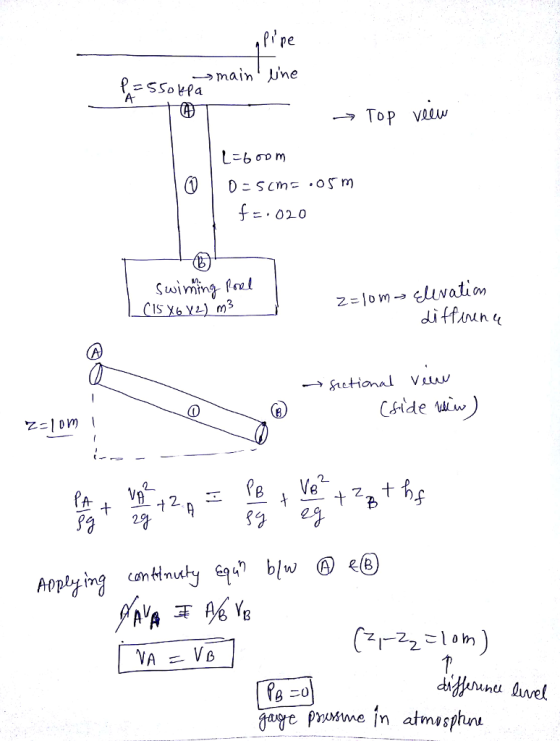 Pipe
→ main line
P_A = 550 kPa
Ⓐ
→ Top view
L = 600 m
① D = 5 cm = .05 m
f = .020
Ⓑ
Swimming Pool
(15 x 6 x 2) m³
z = 10m → elevation
difference
Ⓐ
→ sectional view
(side view)
① Ⓑ
z = 10m
P_A/ρg + V_A²/2g + z_A = P_B/ρg + V_B²/2g + z_B + h_f
Applying continuty Equⁿ b/w Ⓐ & Ⓑ
A_A V_A = A_B V_B
V_A = V_B
(z₁ - z₂ = 10m)
↑
difference level
P_B = 0
gauge pressure in atmosphere